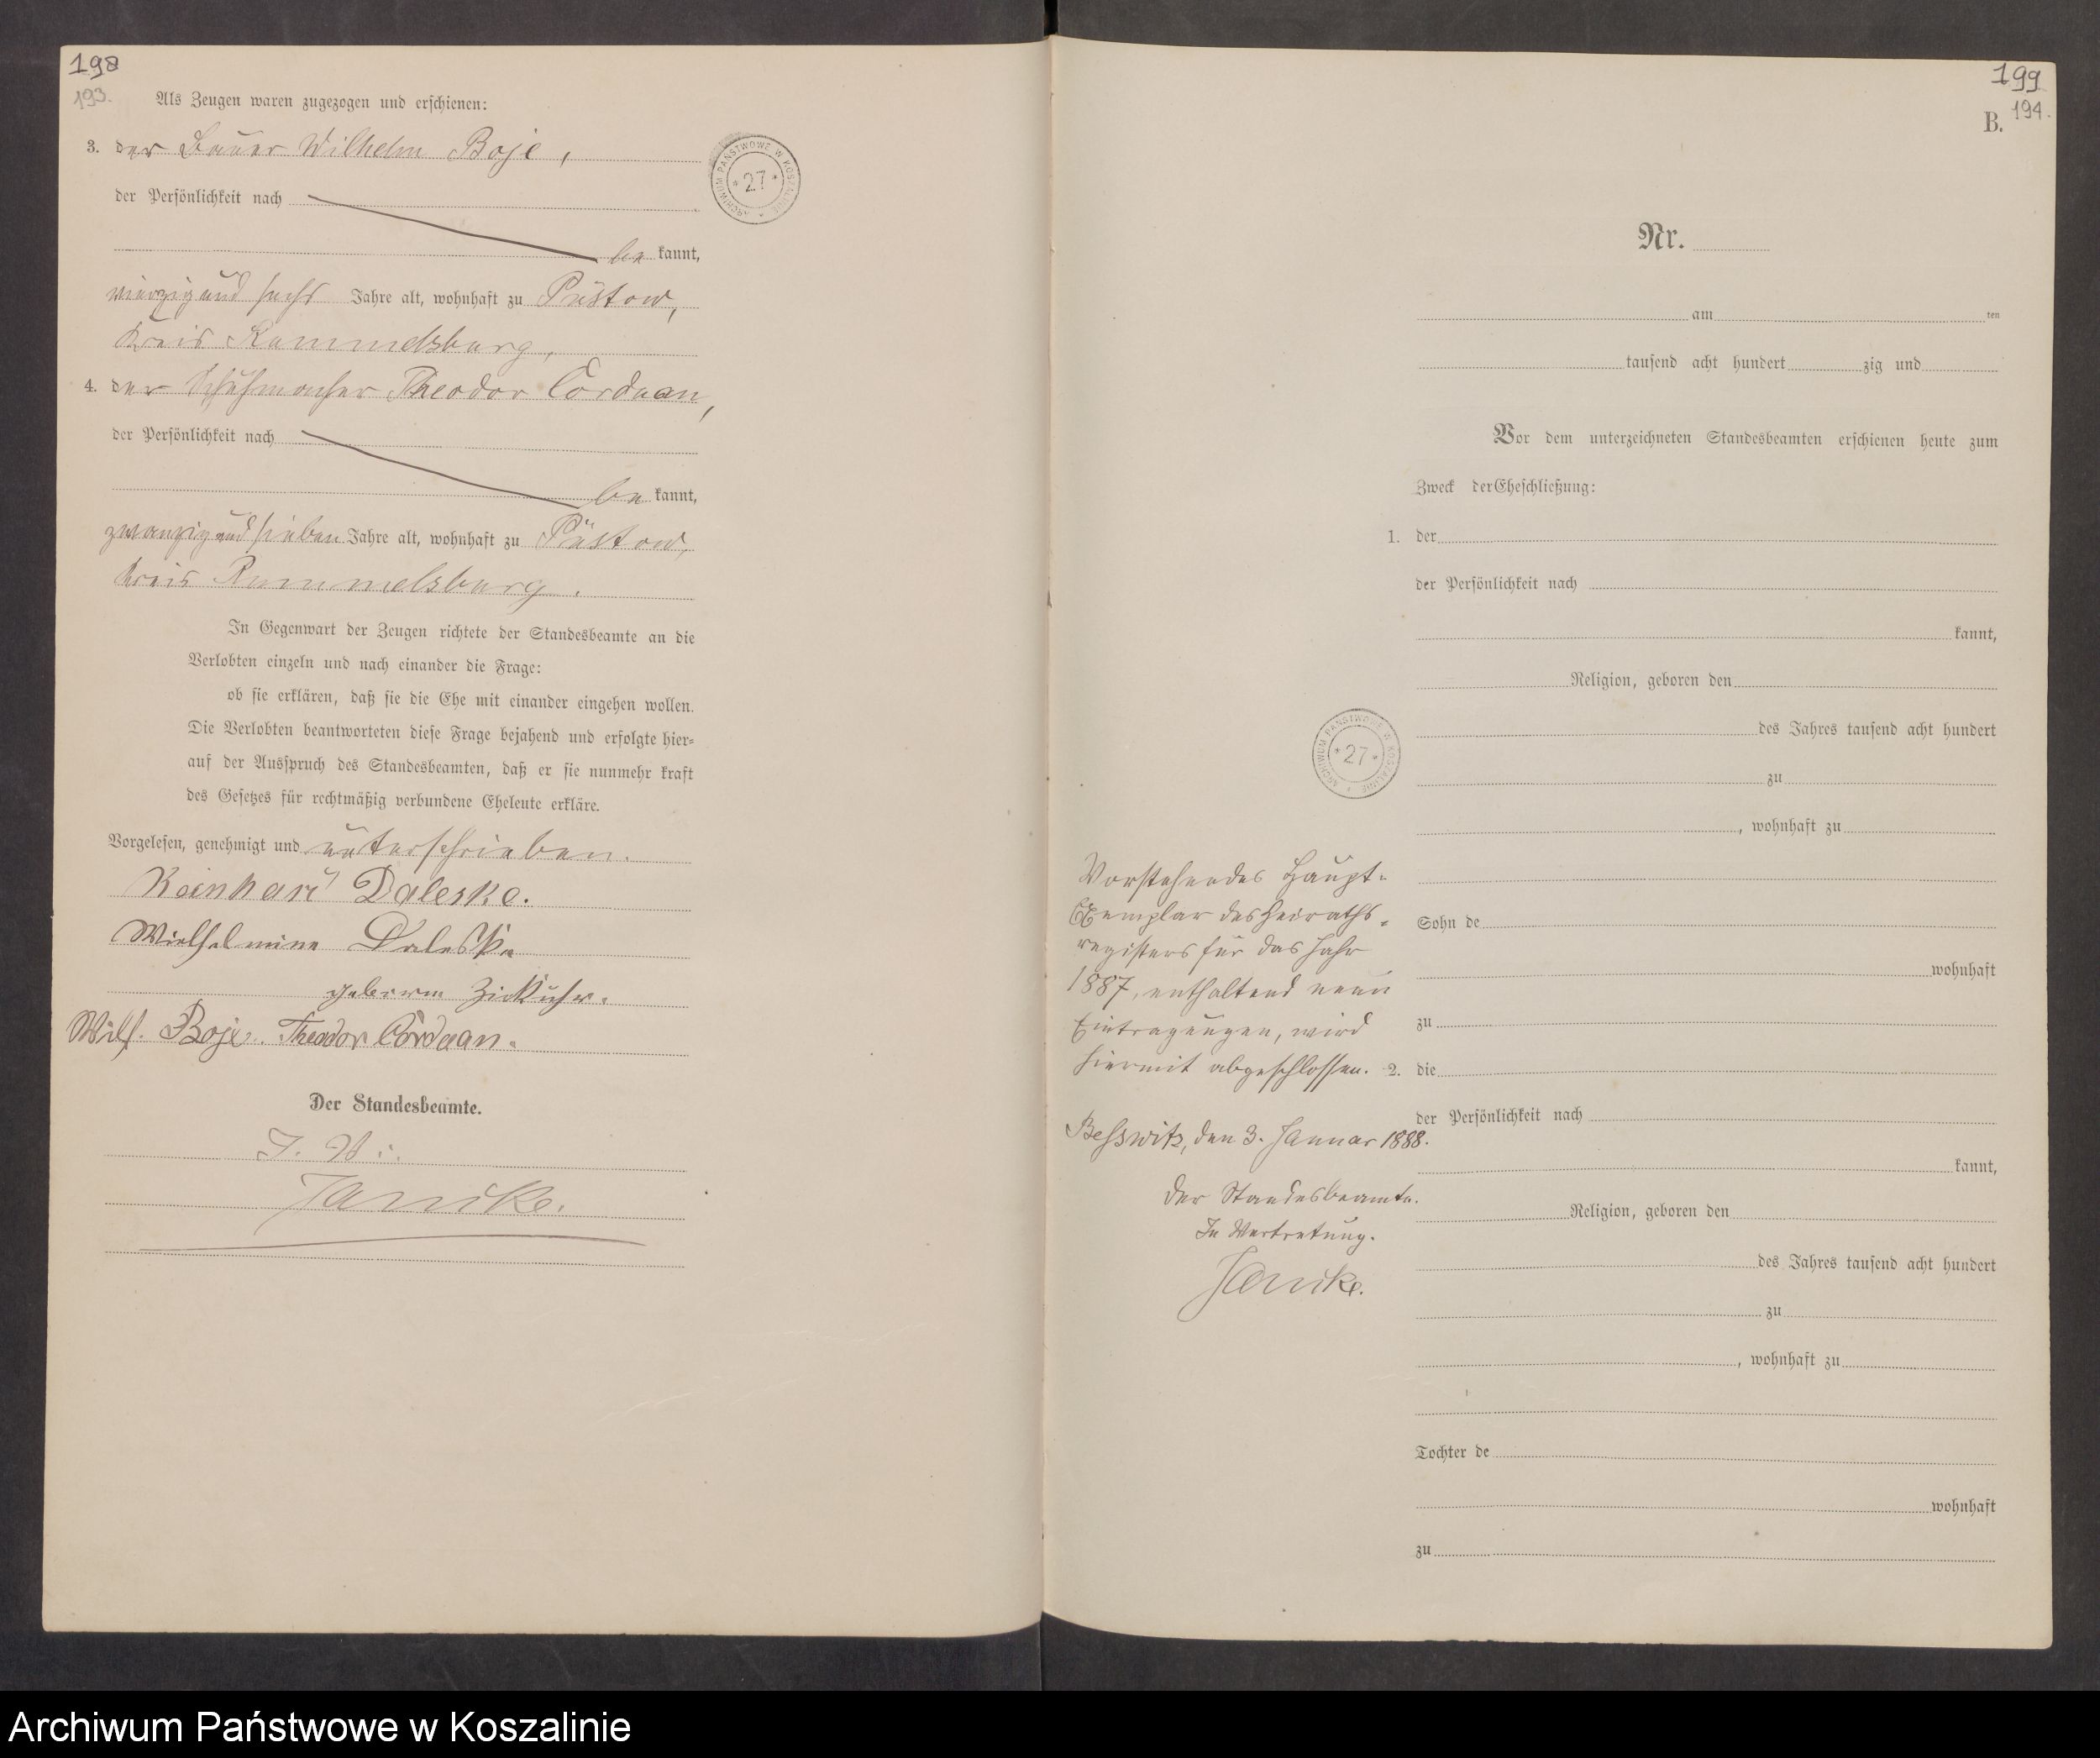 198
193.
Als Zeugen waren zugezogen und erschienen:
3. der Bauer Wilhelm Boje,
der Persönlichkeit nach
be kannt,
vierzig und sechs Jahre alt, wohnhaft zu Püstow,
Kreis Rummelsburg,
4. der Schuhmacher Theodor Corduan,
der Persönlichkeit nach
be kannt,
zwanzig und sieben Jahre alt, wohnhaft zu Püstow,
Kreis Rummelsburg.
In Gegenwart der Zeugen richtete der Standesbeamte an die
Verlobten einzeln und nach einander die Frage:
ob sie erklären, daß sie die Ehe mit einander eingehen wollen.
Die Verlobten beantworteten diese Frage bejahend und erfolgte hier=
auf der Ausspruch des Standesbeamten, daß er sie nunmehr kraft
des Gesetzes für rechtmäßig verbundene Eheleute erkläre.
Vorgelesen, genehmigt und unterschrieben.
Reinhard Daleske.
Wielhelmine Daleske
geborne Zirkuhr.
Wilh. Boje. Theodor Cordaan.
Der Standesbeamte.
J. V.:
Janicke.
ARCHIWUM PAŃSTWOWE W KOSZALINIE
* 27 *
199
194.
B.
Nr.
am ten
tausend acht hundert zig und
Vor dem unterzeichneten Standesbeamten erschienen heute zum
Zweck der Eheschließung:
1. der
der Persönlichkeit nach
kannt,
Religion, geboren den
des Jahres tausend acht hundert
zu
, wohnhaft zu
Sohn de
wohnhaft
zu
2. die
der Persönlichkeit nach
kannt,
Religion, geboren den
des Jahres tausend acht hundert
zu
, wohnhaft zu
Tochter de
wohnhaft
zu
ARCHIWUM PAŃSTWOWE W KOSZALINIE
* 27 *
Vorstehendes Haupt=
Exemplar des Heiraths=
registers für das Jahr
1887, enthaltend neun
Eintragungen, wird
hiermit abgeschlossen.
Besswitz, den 3. Januar 1888.
Der Standesbeamte.
In Vertretung.
Janicke.
Archiwum Państwowe w Koszalinie